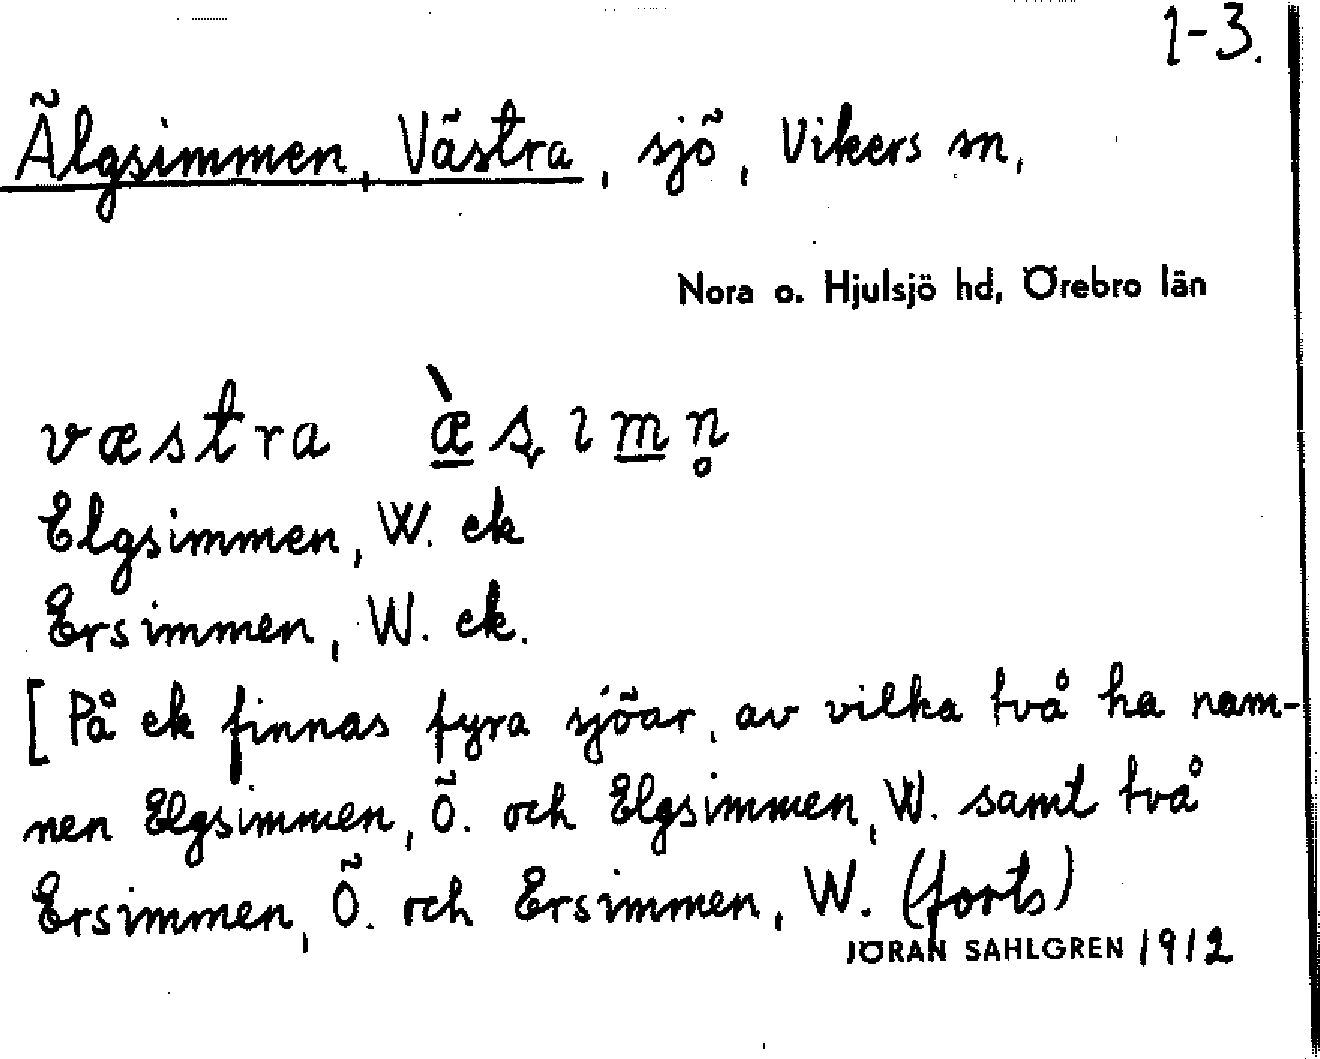 1-3.
Älgsimmen, Västra, sjö, Vikers sn,
Nora o. Hjulsjö hd, Örebro län
væstra æ̀sımn̥
Elgsimmen, W. ek
Ersimmen, W. ek.
[På ek finnas fyra sjöar, av vilka två ha nam-
nen Elgsimmen, Ö. och Elgsimmen, W. samt två
Ersimmen, Ö. och Ersimmen, W. (forts)
JÖRAN SAHLGREN 1912